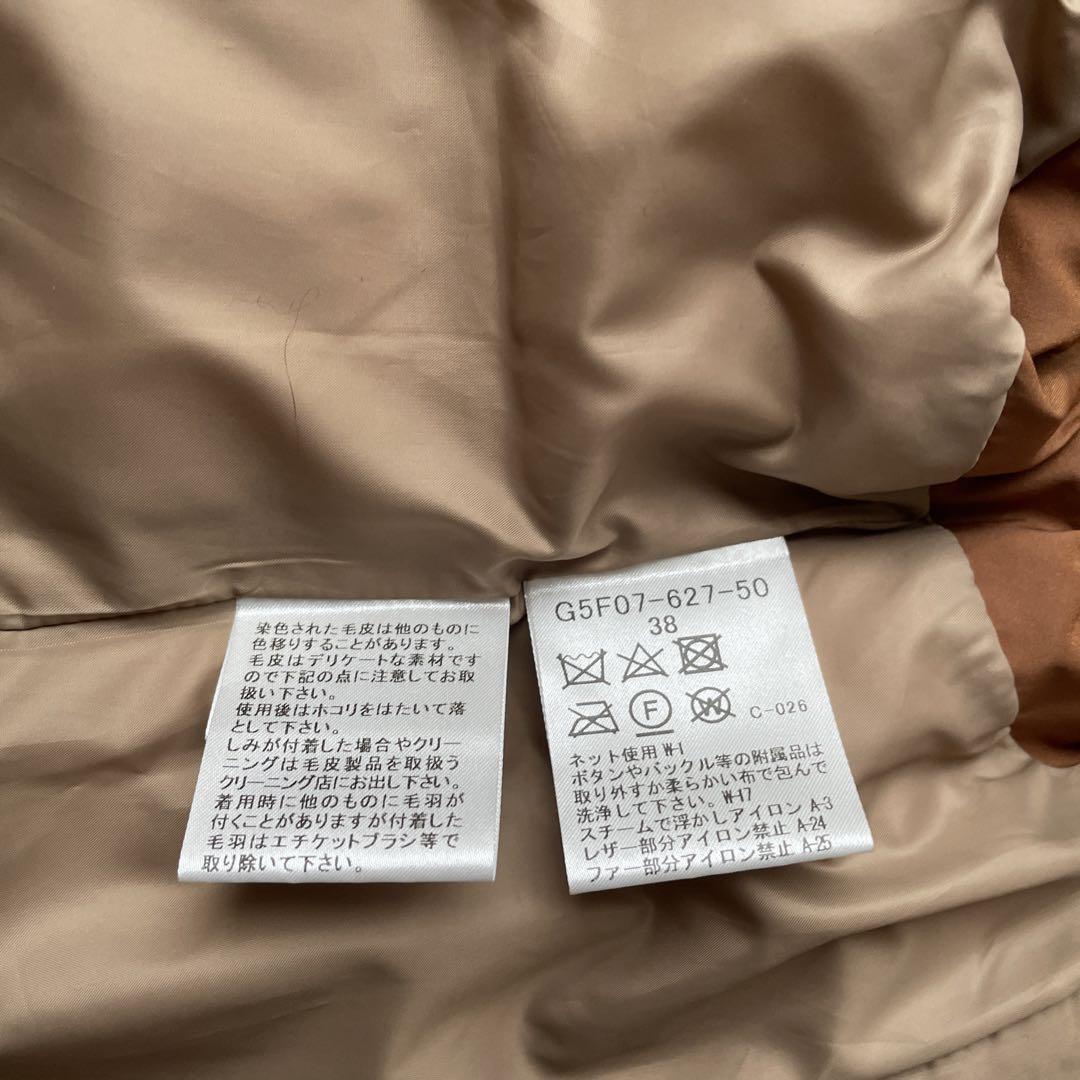 染色された毛皮は他のものに
色移りすることがあります。
毛皮はデリケートな素材です
ので下記の点に注意してお取
扱い下さい。
使用後はホコリをはたいて落
として下さい。
しみが付着した場合やクリー
ニングは毛皮製品を取扱う
クリーニング店にお出し下さい。
着用時に他のものに毛羽が
付くことがありますが付着した
毛羽はエチケットブラシ等で
取り除いて下さい。
G5F07-627-50
38
F W C-026
ネット使用 W-1
ボタンやバックル等の附属品は
取り外すか柔らかい布で包んで
洗浄して下さい。W-17
スチームで浮かしアイロン A-3
レザー部分アイロン禁止 A-24
ファー部分アイロン禁止 A-25